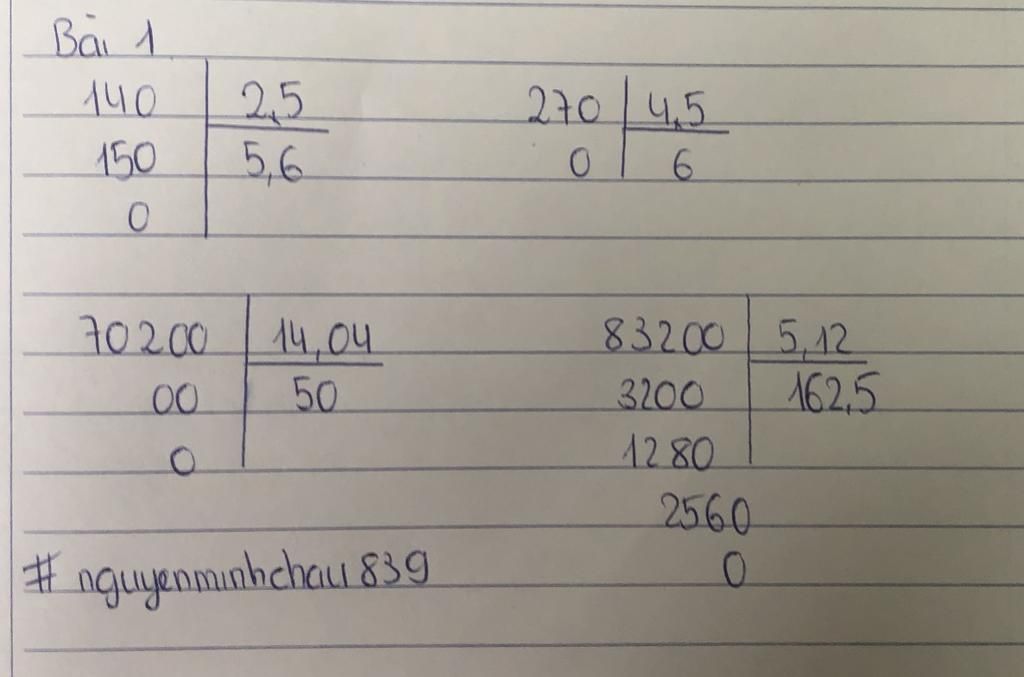 Bài 1
140 2,5 270 4,5
150 5,6 0 6
0
70200 14,04 83200 5,12
00 50 3200 162,5
0 1280
2560
# nguyenminhchau839 0